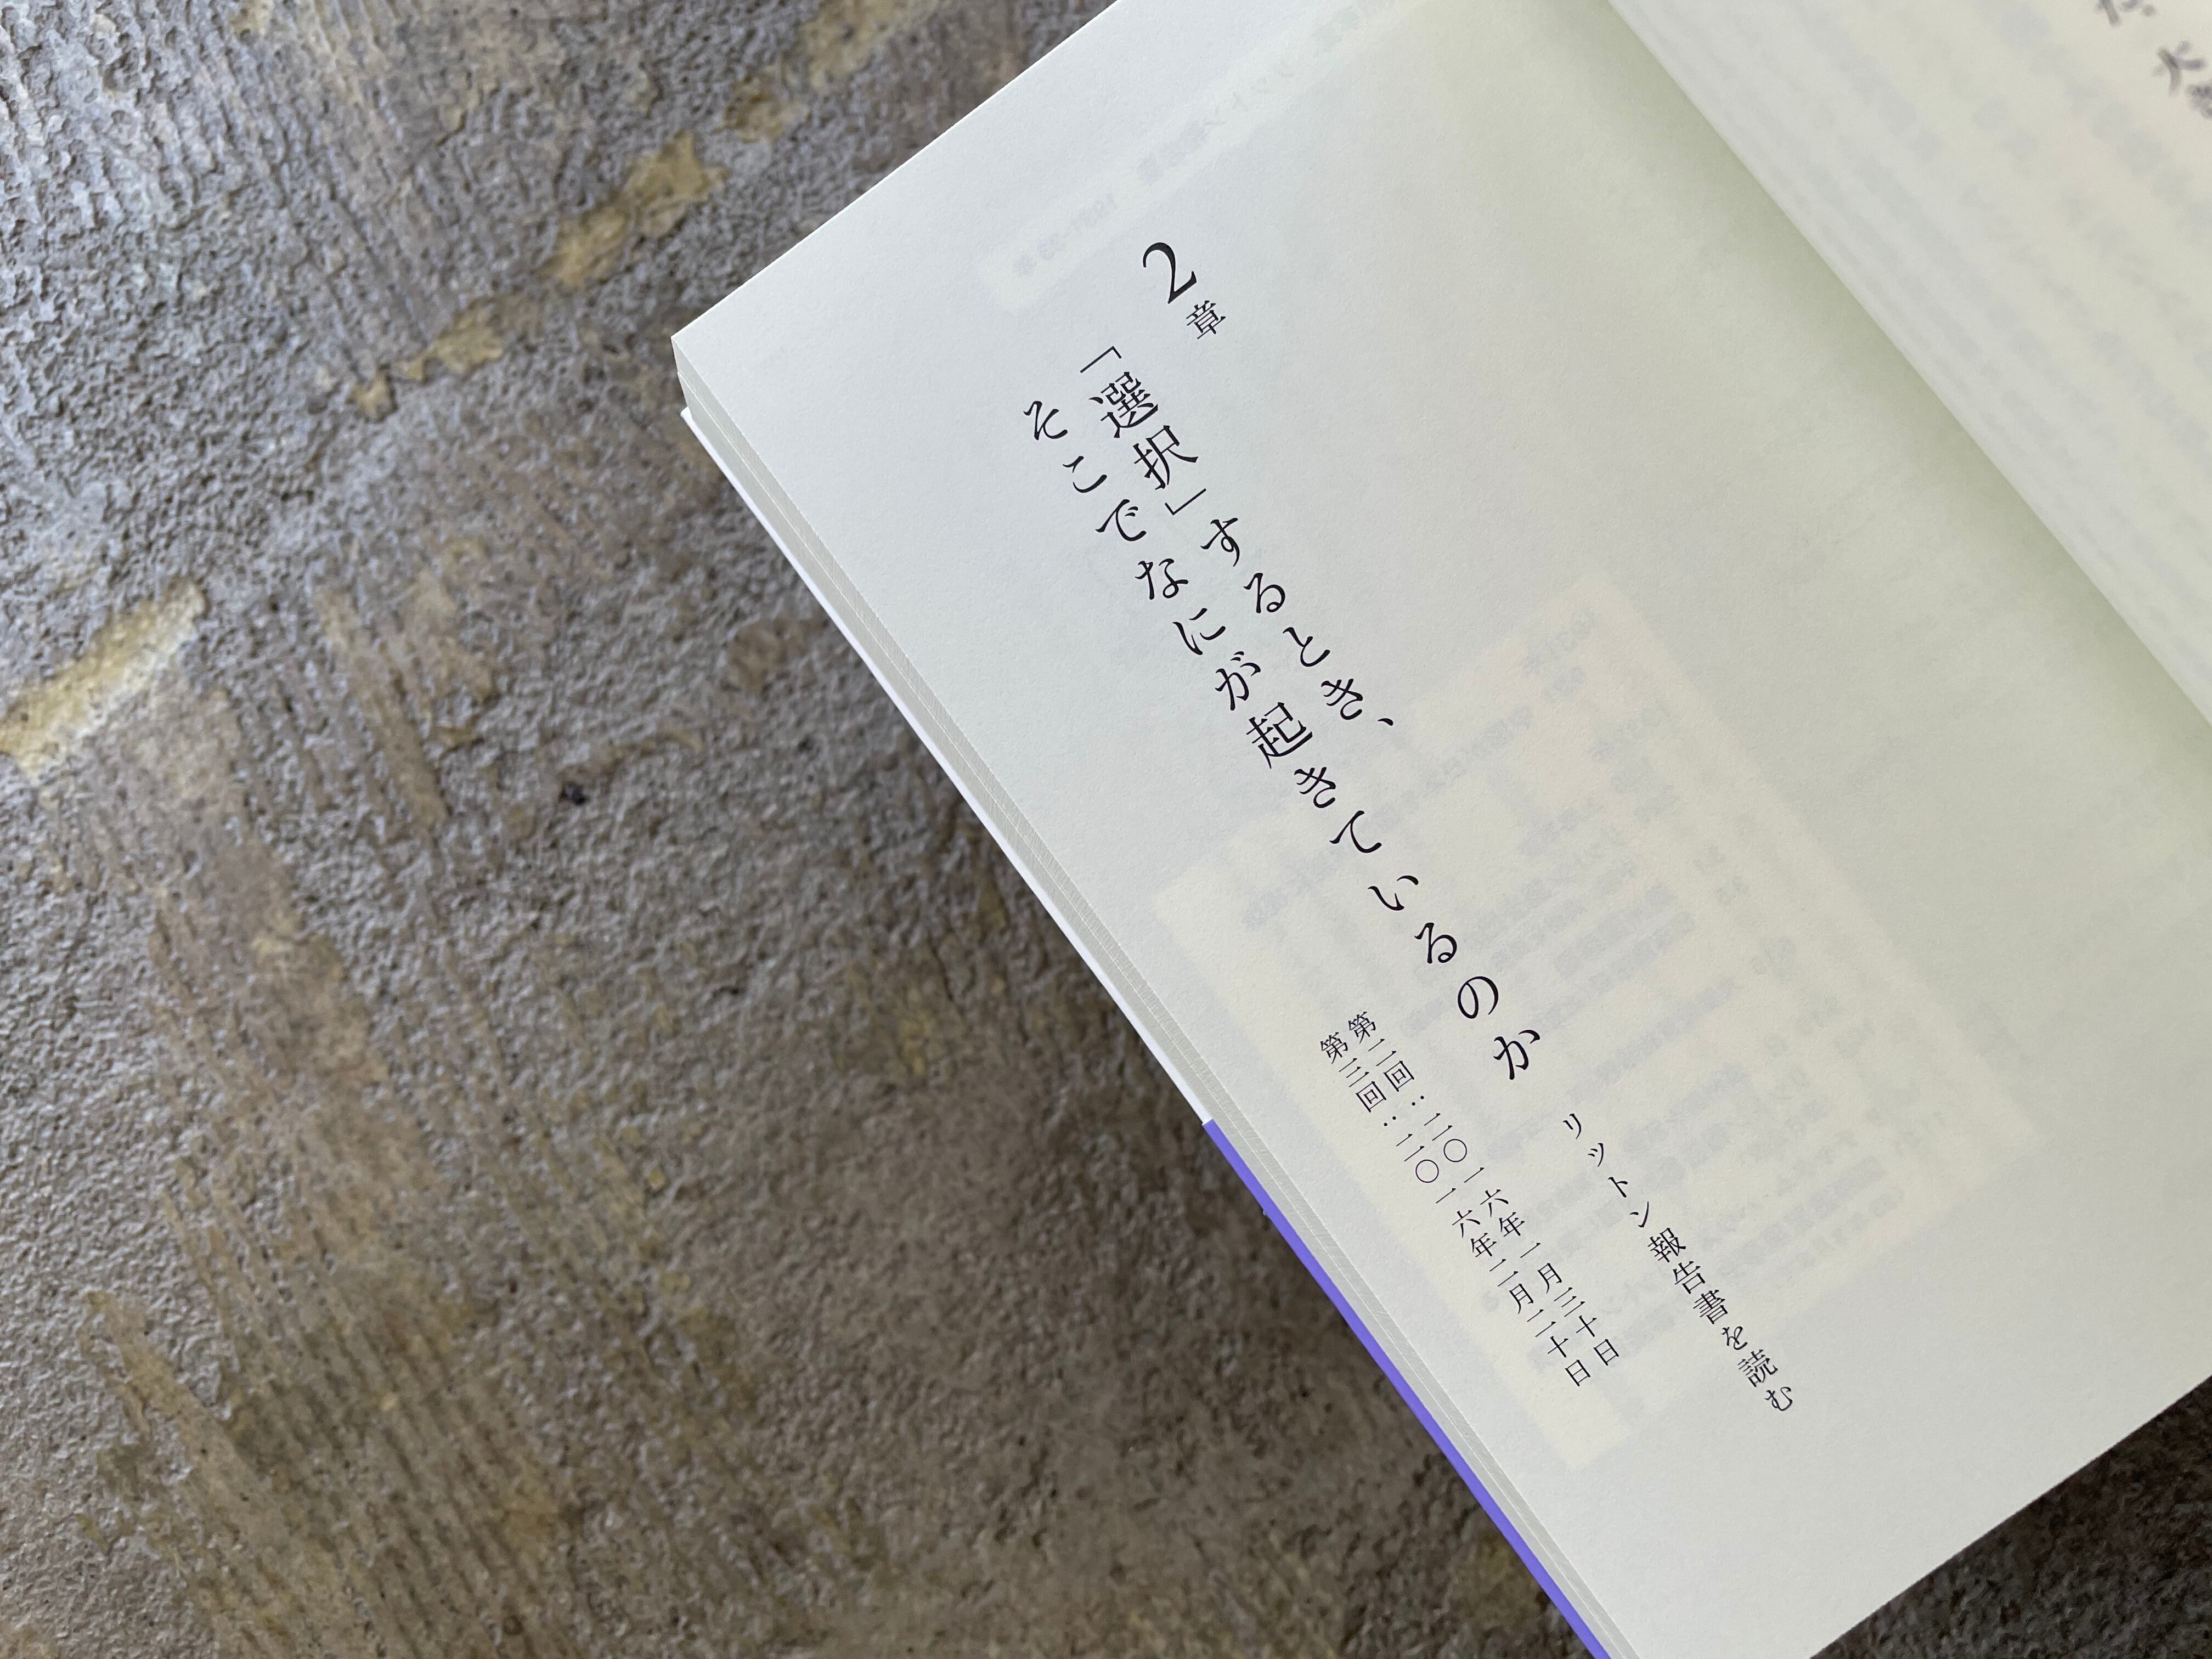 2章
「選択」するとき、
そこでなにが起きているのか
リットン報告書を読む
第二回：二〇一六年一月三十日
第三回：二〇一六年二月二十日